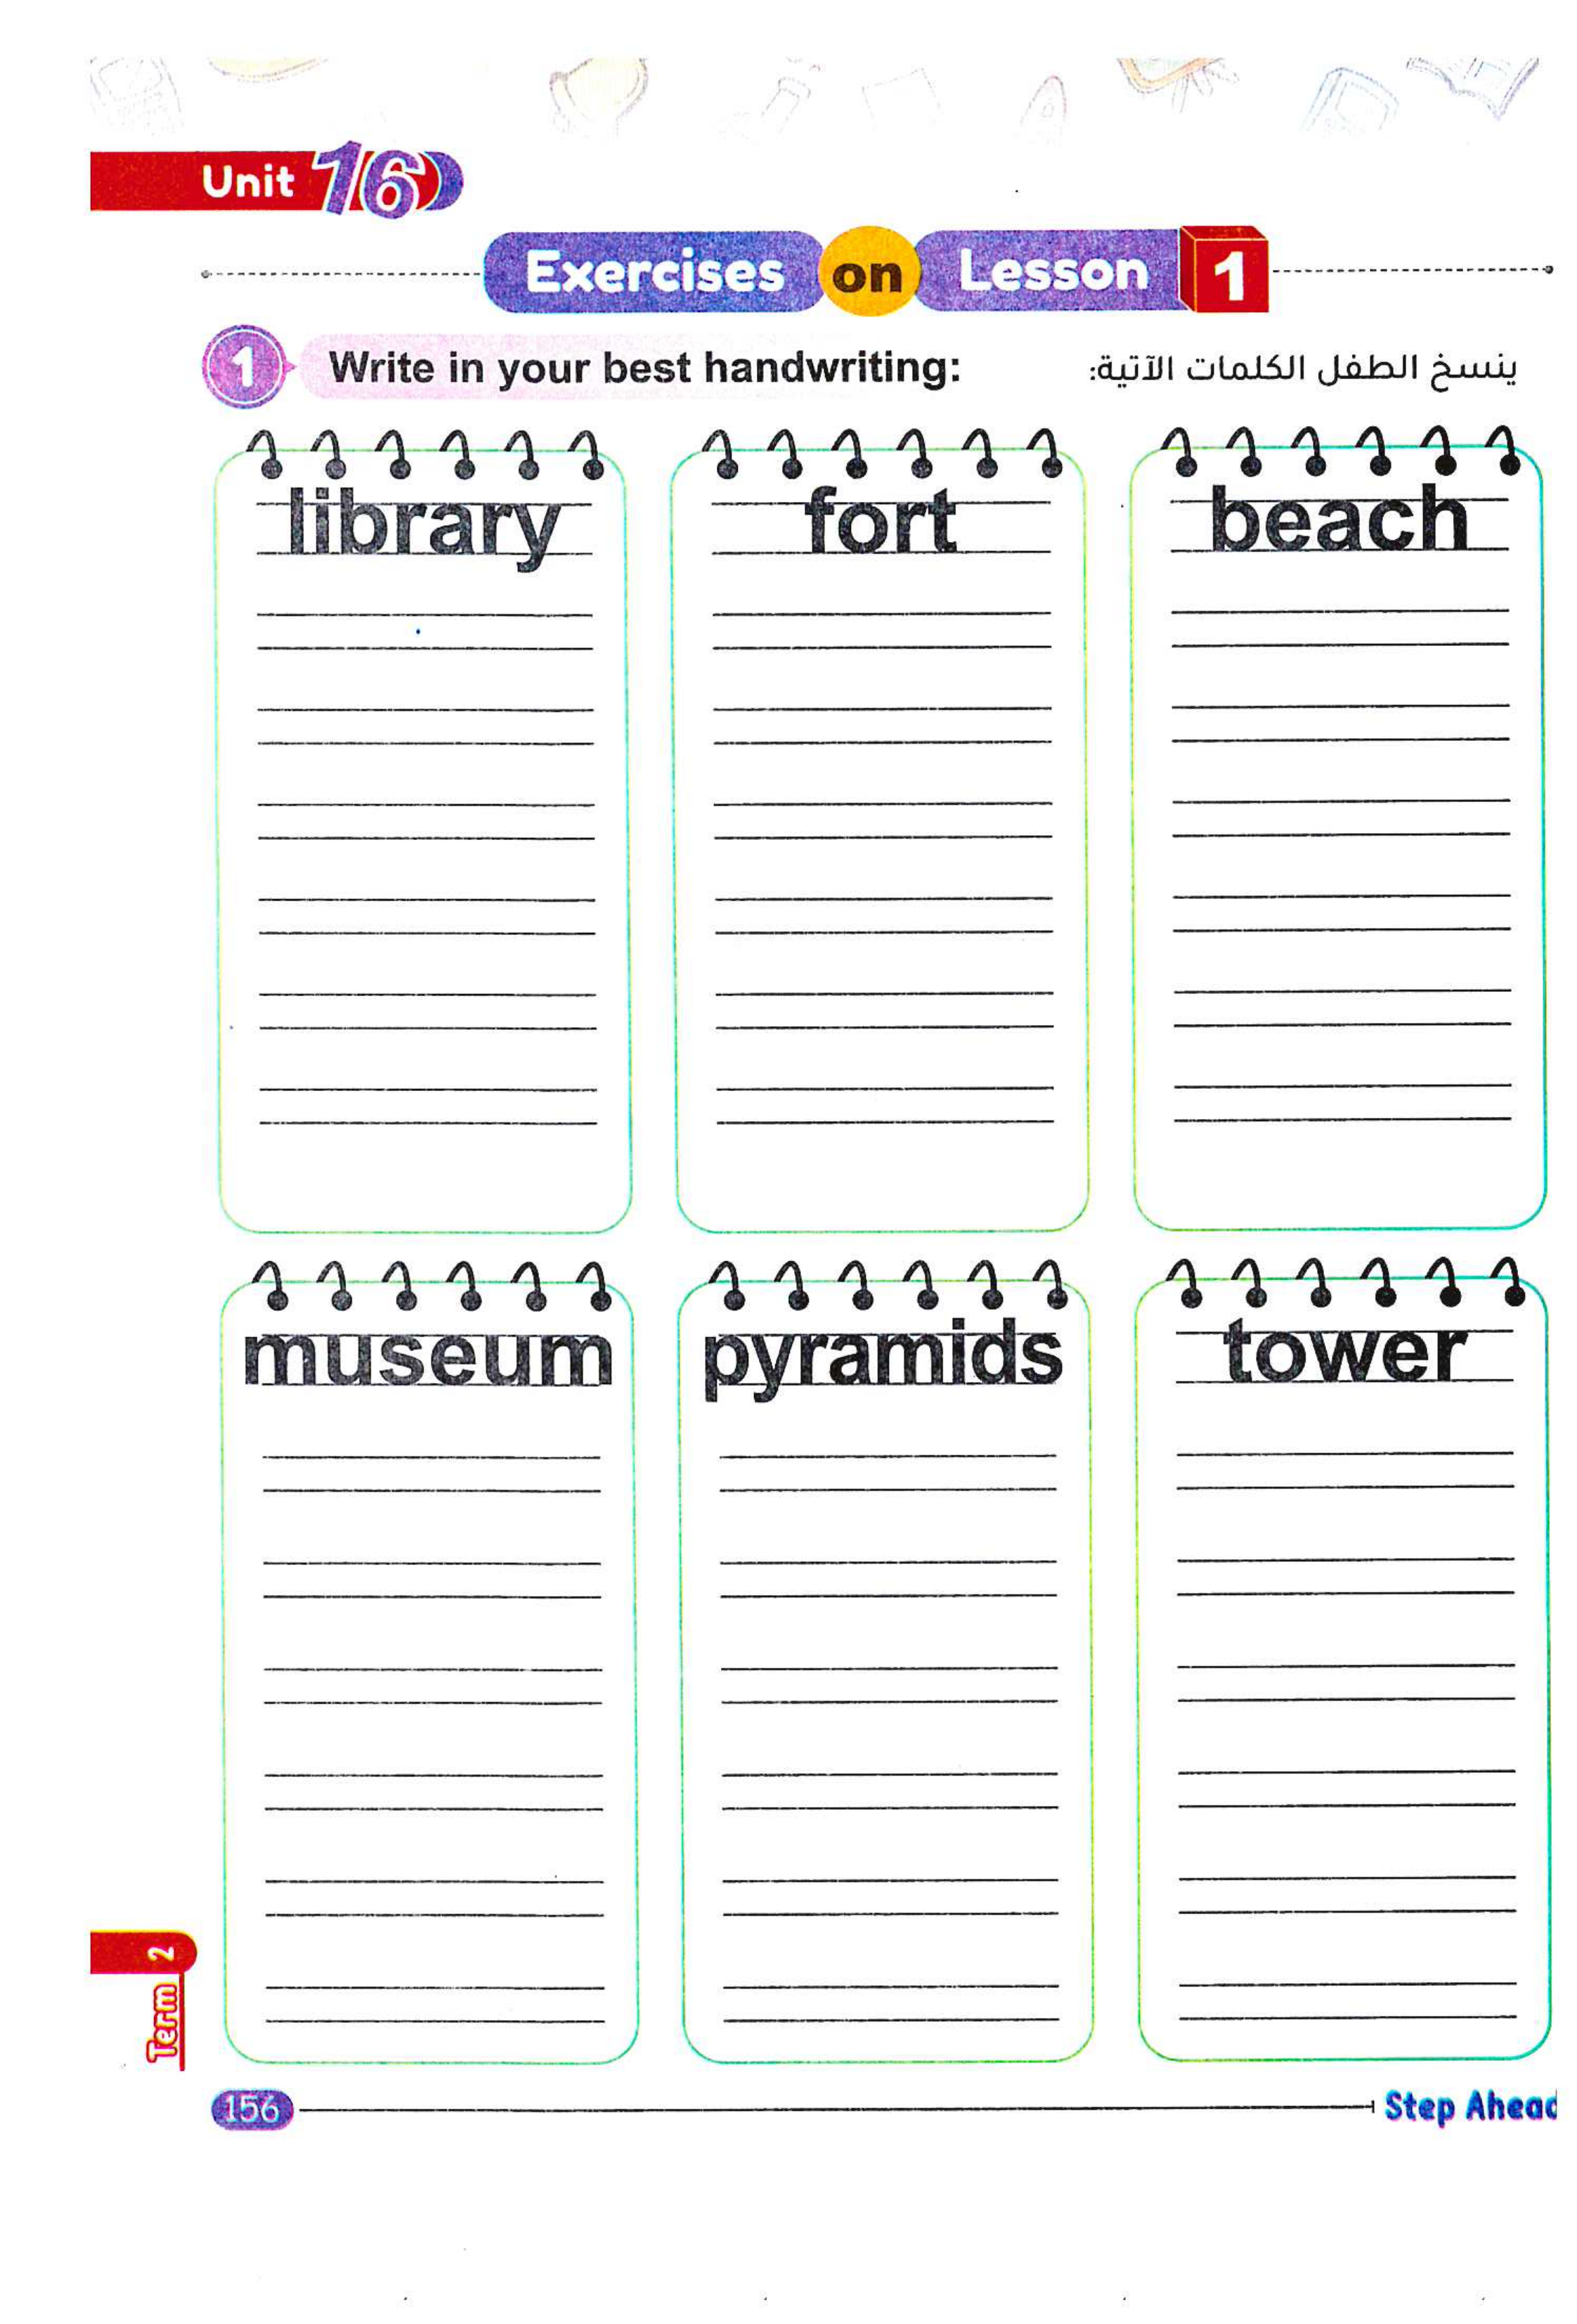 Unit 16
Exercises on Lesson 1
1 Write in your best handwriting:
ينسخ الطفل الكلمات الآتية:
library fort beach
museum pyramids tower
Term 2
156 Step Ahead